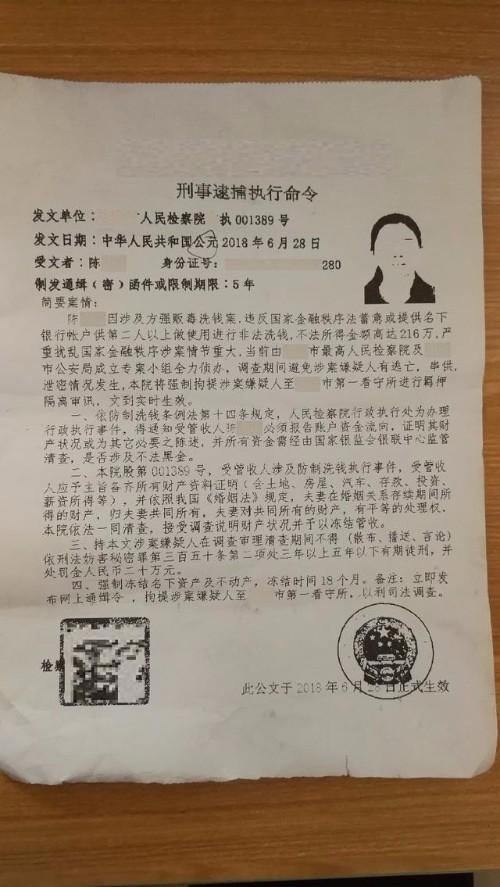 刑事逮捕执行命令
发文单位: 人民检察院 执 001389 号
发文日期:中华人民共和国公元 2018 年 6 月 28 日
受文者:陈 身份证号: 280
制发通缉(密)函件或限制期限:5 年
简要案情:
陈 因涉及方强贩毒洗钱案,违反国家金融秩序法蓄意或提供名下
银行帐户供第二人以上做使用进行非法洗钱,不法所得金额高达 216 万,严
重扰乱国家金融秩序涉案情节重大,当前由 市最高人民检察院及
市公安局成立专案小组全力侦办,调查期间避免涉案嫌疑人有逃亡,串供,
泄密情况发生,本院将强制拘提涉案嫌疑人至 市第一看守所进行羁押
隔离审讯,文到实时生效。
一、依防制洗钱条例法第十四条规定,人民检察院行政执行处为办理
行政执行事件,得通知受管收人 必须报告账户资金流向,证明其财
产状况或为其它必要之陈述,并所有资金需经由国家银监会银联中心监管
清查,是否涉及不法黑金。
二、本院股第 001389 号,受管收人涉及防制洗钱执行事件,受管收
人应予主旨备齐所有财产资料证明(含土地、房屋、汽车、存款、投资、
薪资所得等),并依照我国《婚姻法》规定,夫妻在婚姻关系存续期间所
得的财产,归夫妻共同所有,夫妻对共同所有的财产,有平等的处理权,
本院依法一同清查,接受调查说明财产状况并予以冻结管收。
三、持本文涉案嫌疑人在调查审理清查期间不得(散布、播送、言论)
依刑法妨害秘密罪第三百五十条第二项处三年以上五年以下有期徒刑,并
处罚金人民币二十万元。
四、强制冻结名下资产及不动产,冻结时间 18 个月。备注:立即发
布网上通缉令,拘提涉案嫌疑人至 市第一看守所,以利司法调查。
检
此公文于 2018 年 6 月 28 日正式生效